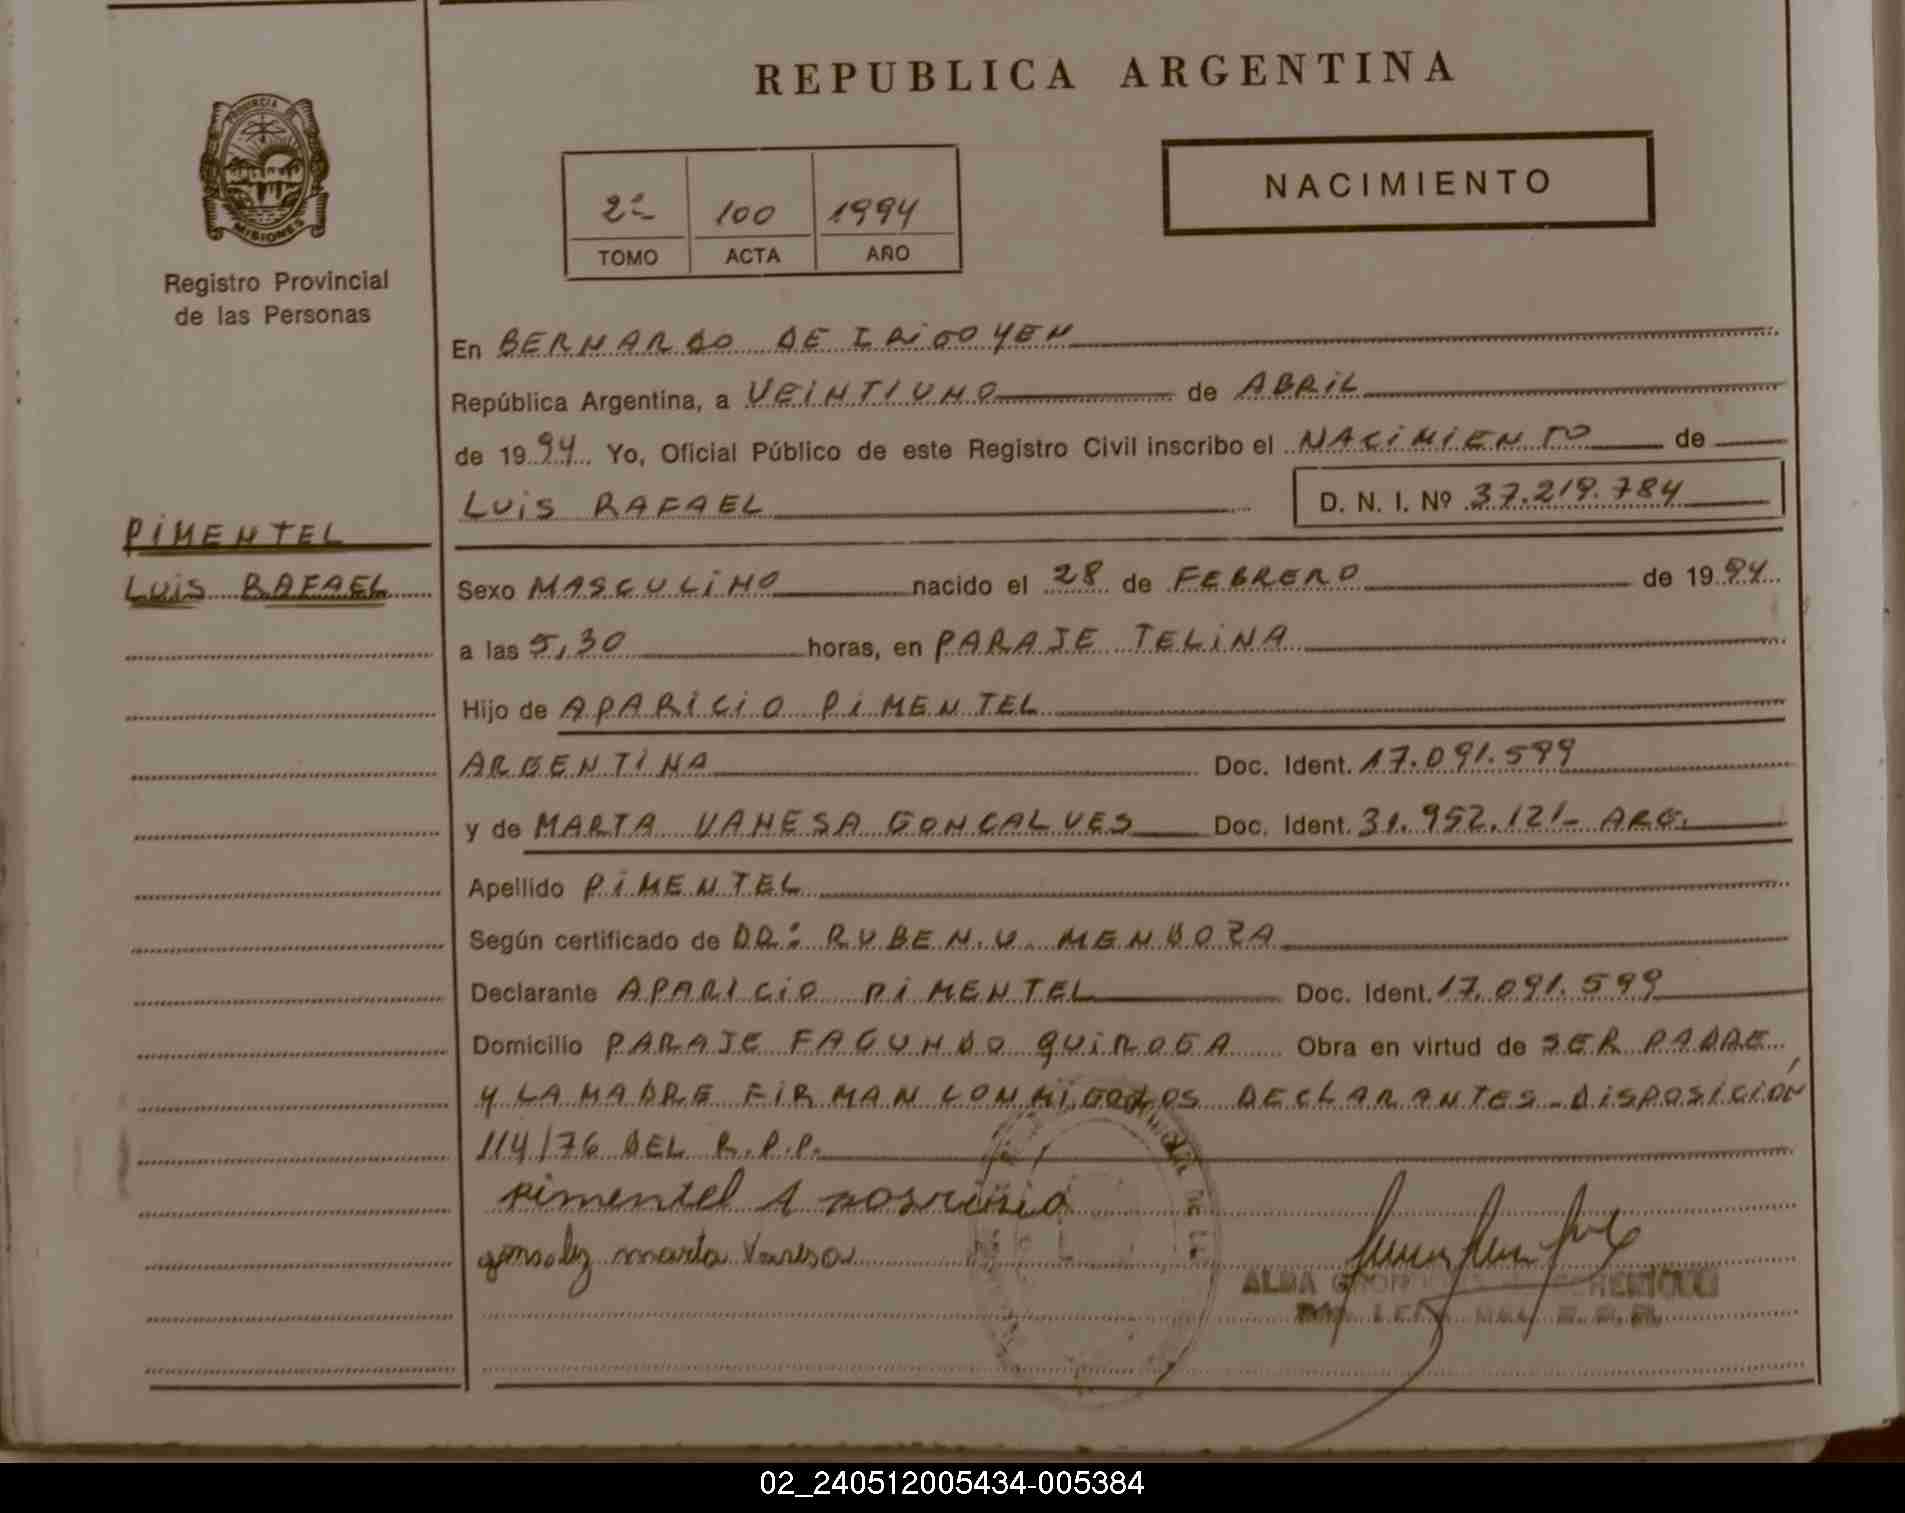 REPUBLICA ARGENTINA
PROVINCIA DE
MISIONES
Registro Provincial
de las Personas
2º 100 1994
TOMO ACTA AÑO
NACIMIENTO
En BERNARDO DE IRIGOYEN
República Argentina, a VEINTIUNO de ABRIL
de 1994. Yo, Oficial Público de este Registro Civil inscribo el NACIMIENTO de
LUIS RAFAEL D. N. I. Nº 37.219.784
PIMENTEL
LUIS RAFAEL
Sexo MASCULINO nacido el 28 de FEBRERO de 1994
a las 5,30 horas, en PARAJE TELINA
Hijo de APARICIO PIMENTEL
ARGENTINA Doc. Ident. 17.091.599
y de MARTA VANESA GONCALVES Doc. Ident. 31.952.121- ARG.
Apellido PIMENTEL
Según certificado de DR: RUBEN.U. MENDOZA
Declarante APARICIO PIMENTEL Doc. Ident. 17.091.599
Domicilio PARAJE FACUNDO QUIROGA Obra en virtud de SER PADRE
Y LA MADRE FIRMAN CONMIGO LOS DECLARANTES - DISPOSICIÓN
114/76 DEL R.P.P.
pimentel
marta Vanesa
ALBA
02_240512005434-005384